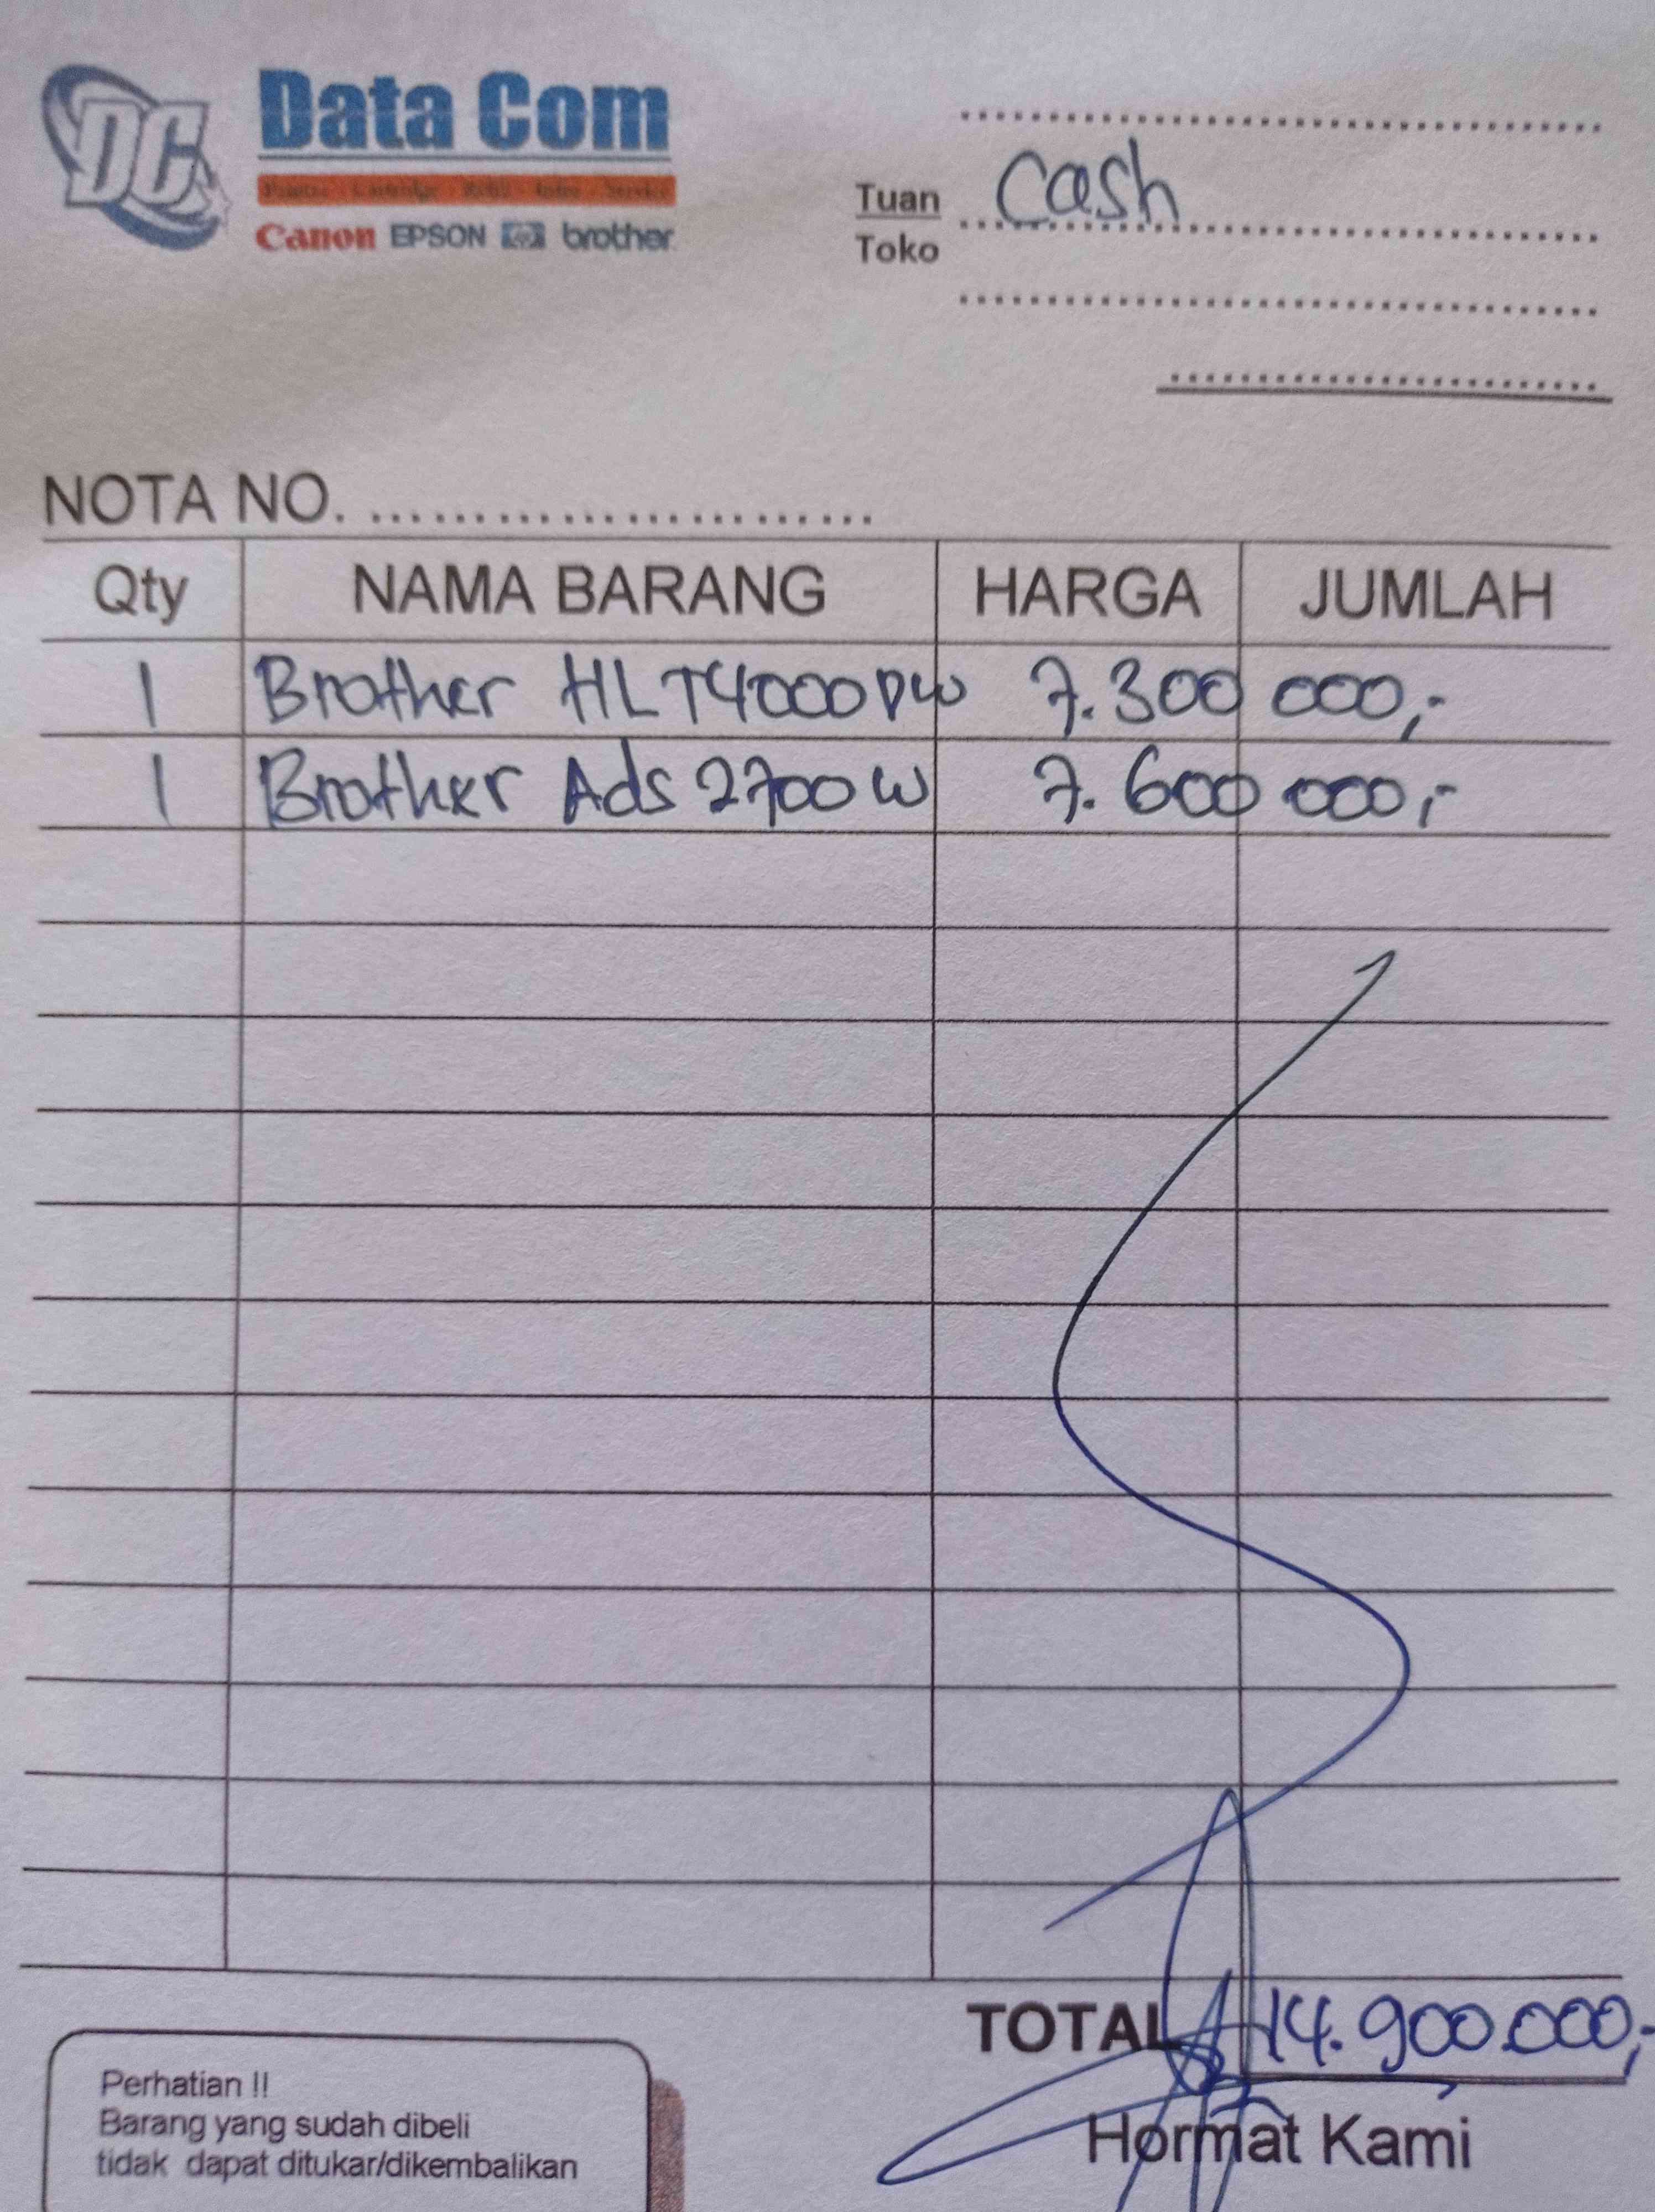 DC
Data Com
Canon EPSON hp brother
Tuan Cash
Toko
NOTA NO. ........................
Qty NAMA BARANG HARGA JUMLAH
1 Brother HL T4000DW 7.300 000,-
1 Brother Ads 2700 W 7.600 000,-
TOTAL 14.900.000,-
Hormat Kami
Perhatian !!
Barang yang sudah dibeli
tidak dapat ditukar/dikembalikan